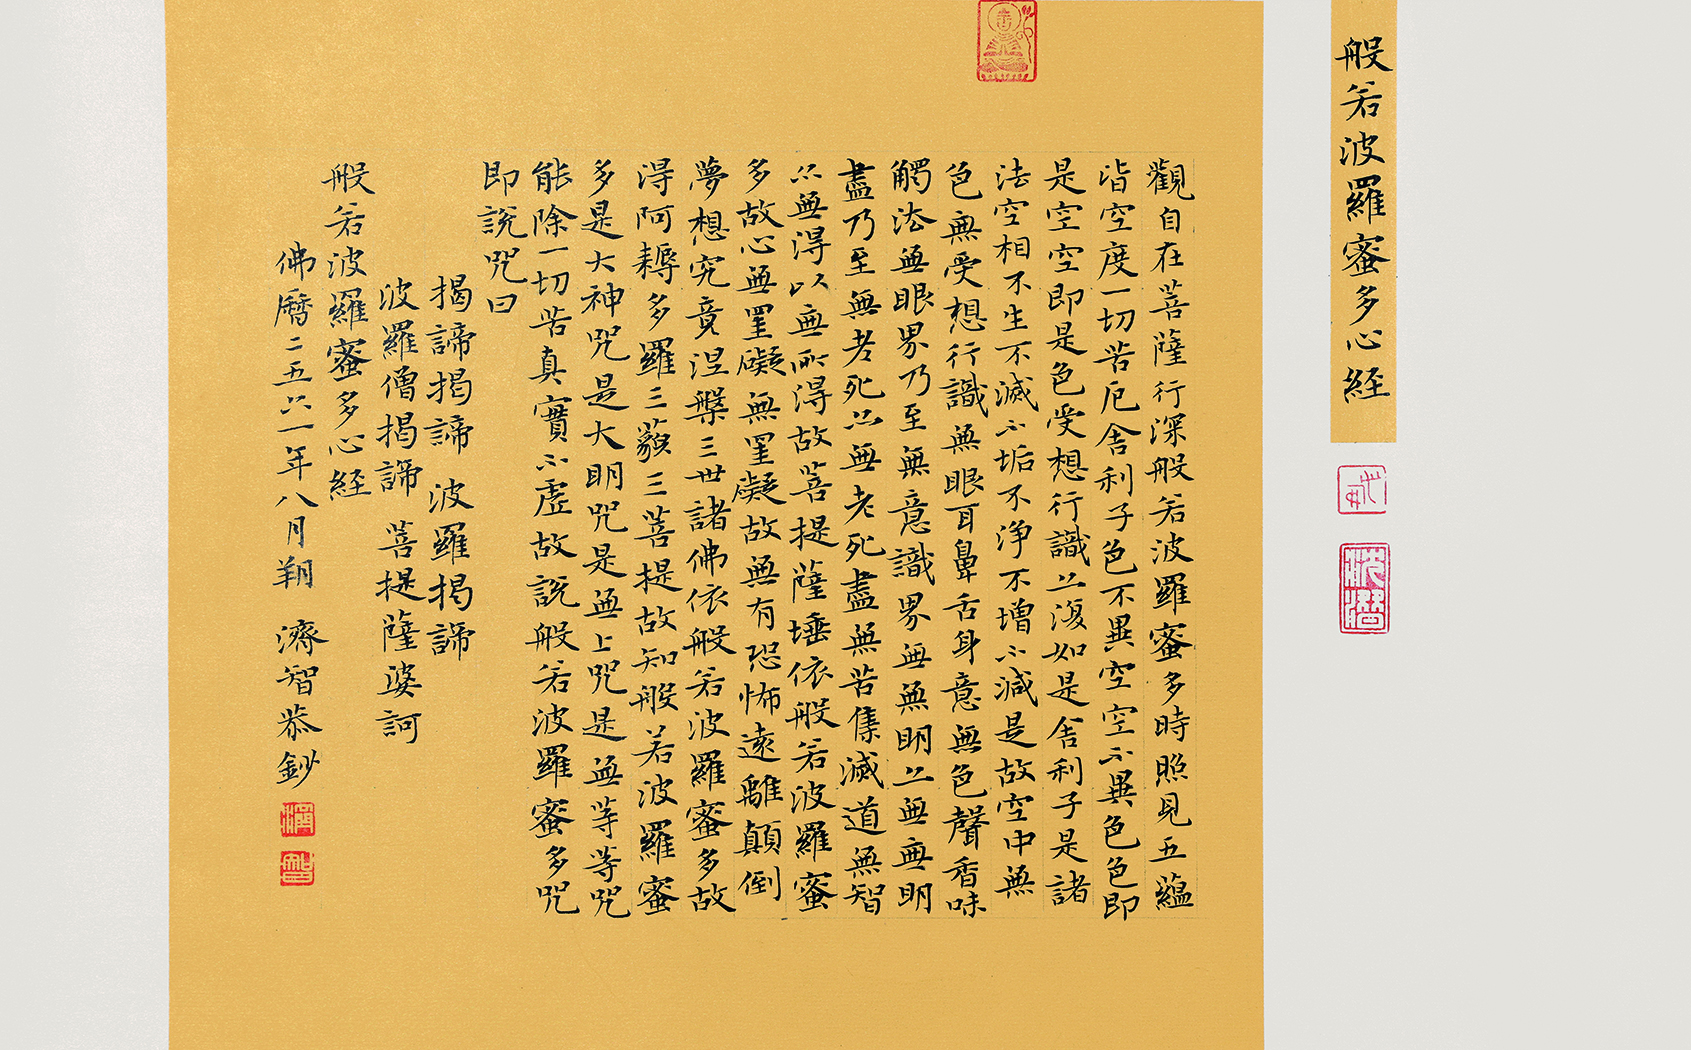 般若波羅蜜多心経
觀自在菩薩行深般若波羅蜜多時照見五蘊
皆空度一切苦厄舍利子色不異空空不異色色即
是空空即是色受想行識亦復如是舍利子是諸
法空相不生不滅不垢不淨不增不減是故空中無
色無受想行識無眼耳鼻舌身意無色聲香味
觸法無眼界乃至無意識界無無明亦無無明
盡乃至無老死亦無老死盡無苦集滅道無智
亦無得以無所得故菩提薩埵依般若波羅蜜
多故心無罣礙無罣礙故無有恐怖遠離顛倒
夢想究竟涅槃三世諸佛依般若波羅蜜多故
得阿耨多羅三藐三菩提故知般若波羅蜜
多是大神咒是大明咒是無上咒是無等等咒
能除一切苦真實不虛故說般若波羅蜜多咒
即說咒曰
揭諦揭諦 波羅揭諦
波羅僧揭諦 菩提薩婆訶
般若波羅蜜多心経
佛曆二五六一年八月朔 濟智恭鈔